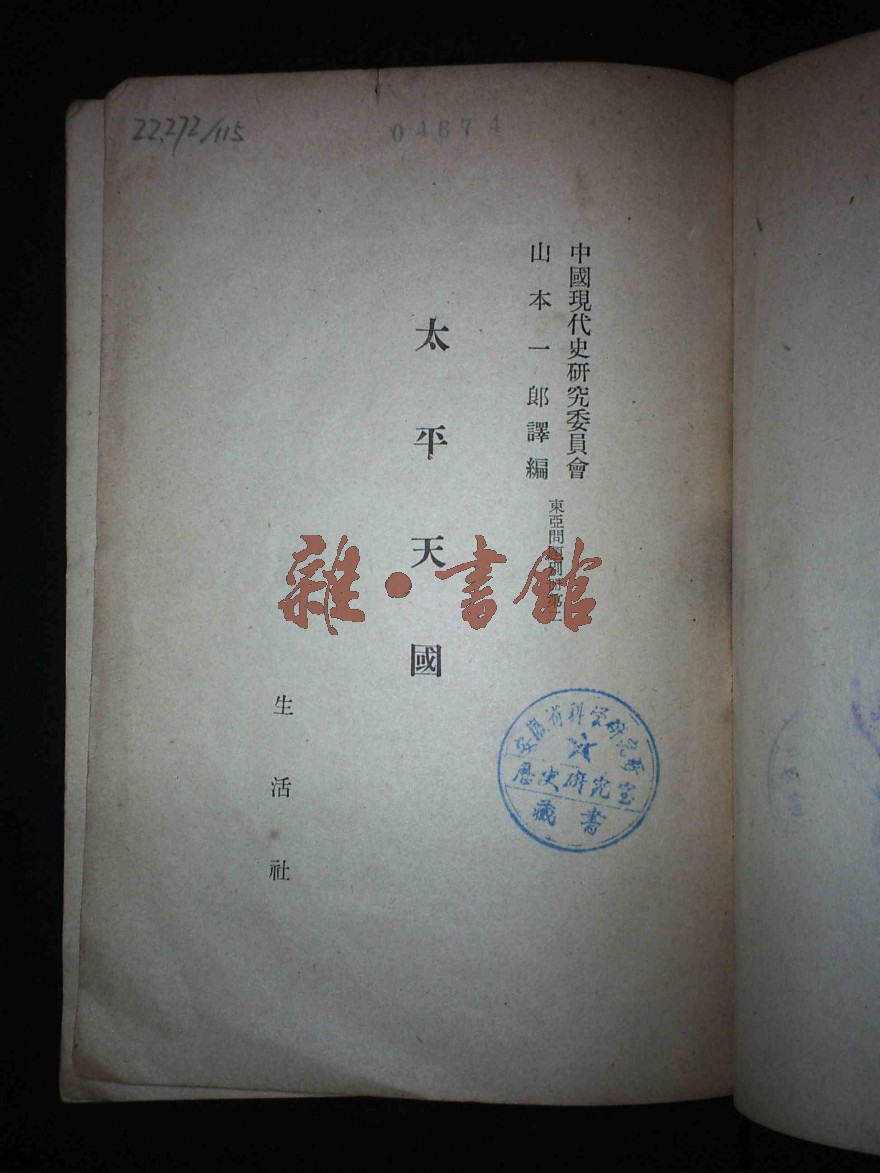 22.272/115
04874
中國現代史研究委員會
山本一郎譯編
東亞問題別冊第二
太平天國
生活社
雜·書館
安徽省科学研究所
歷史研究室
藏書